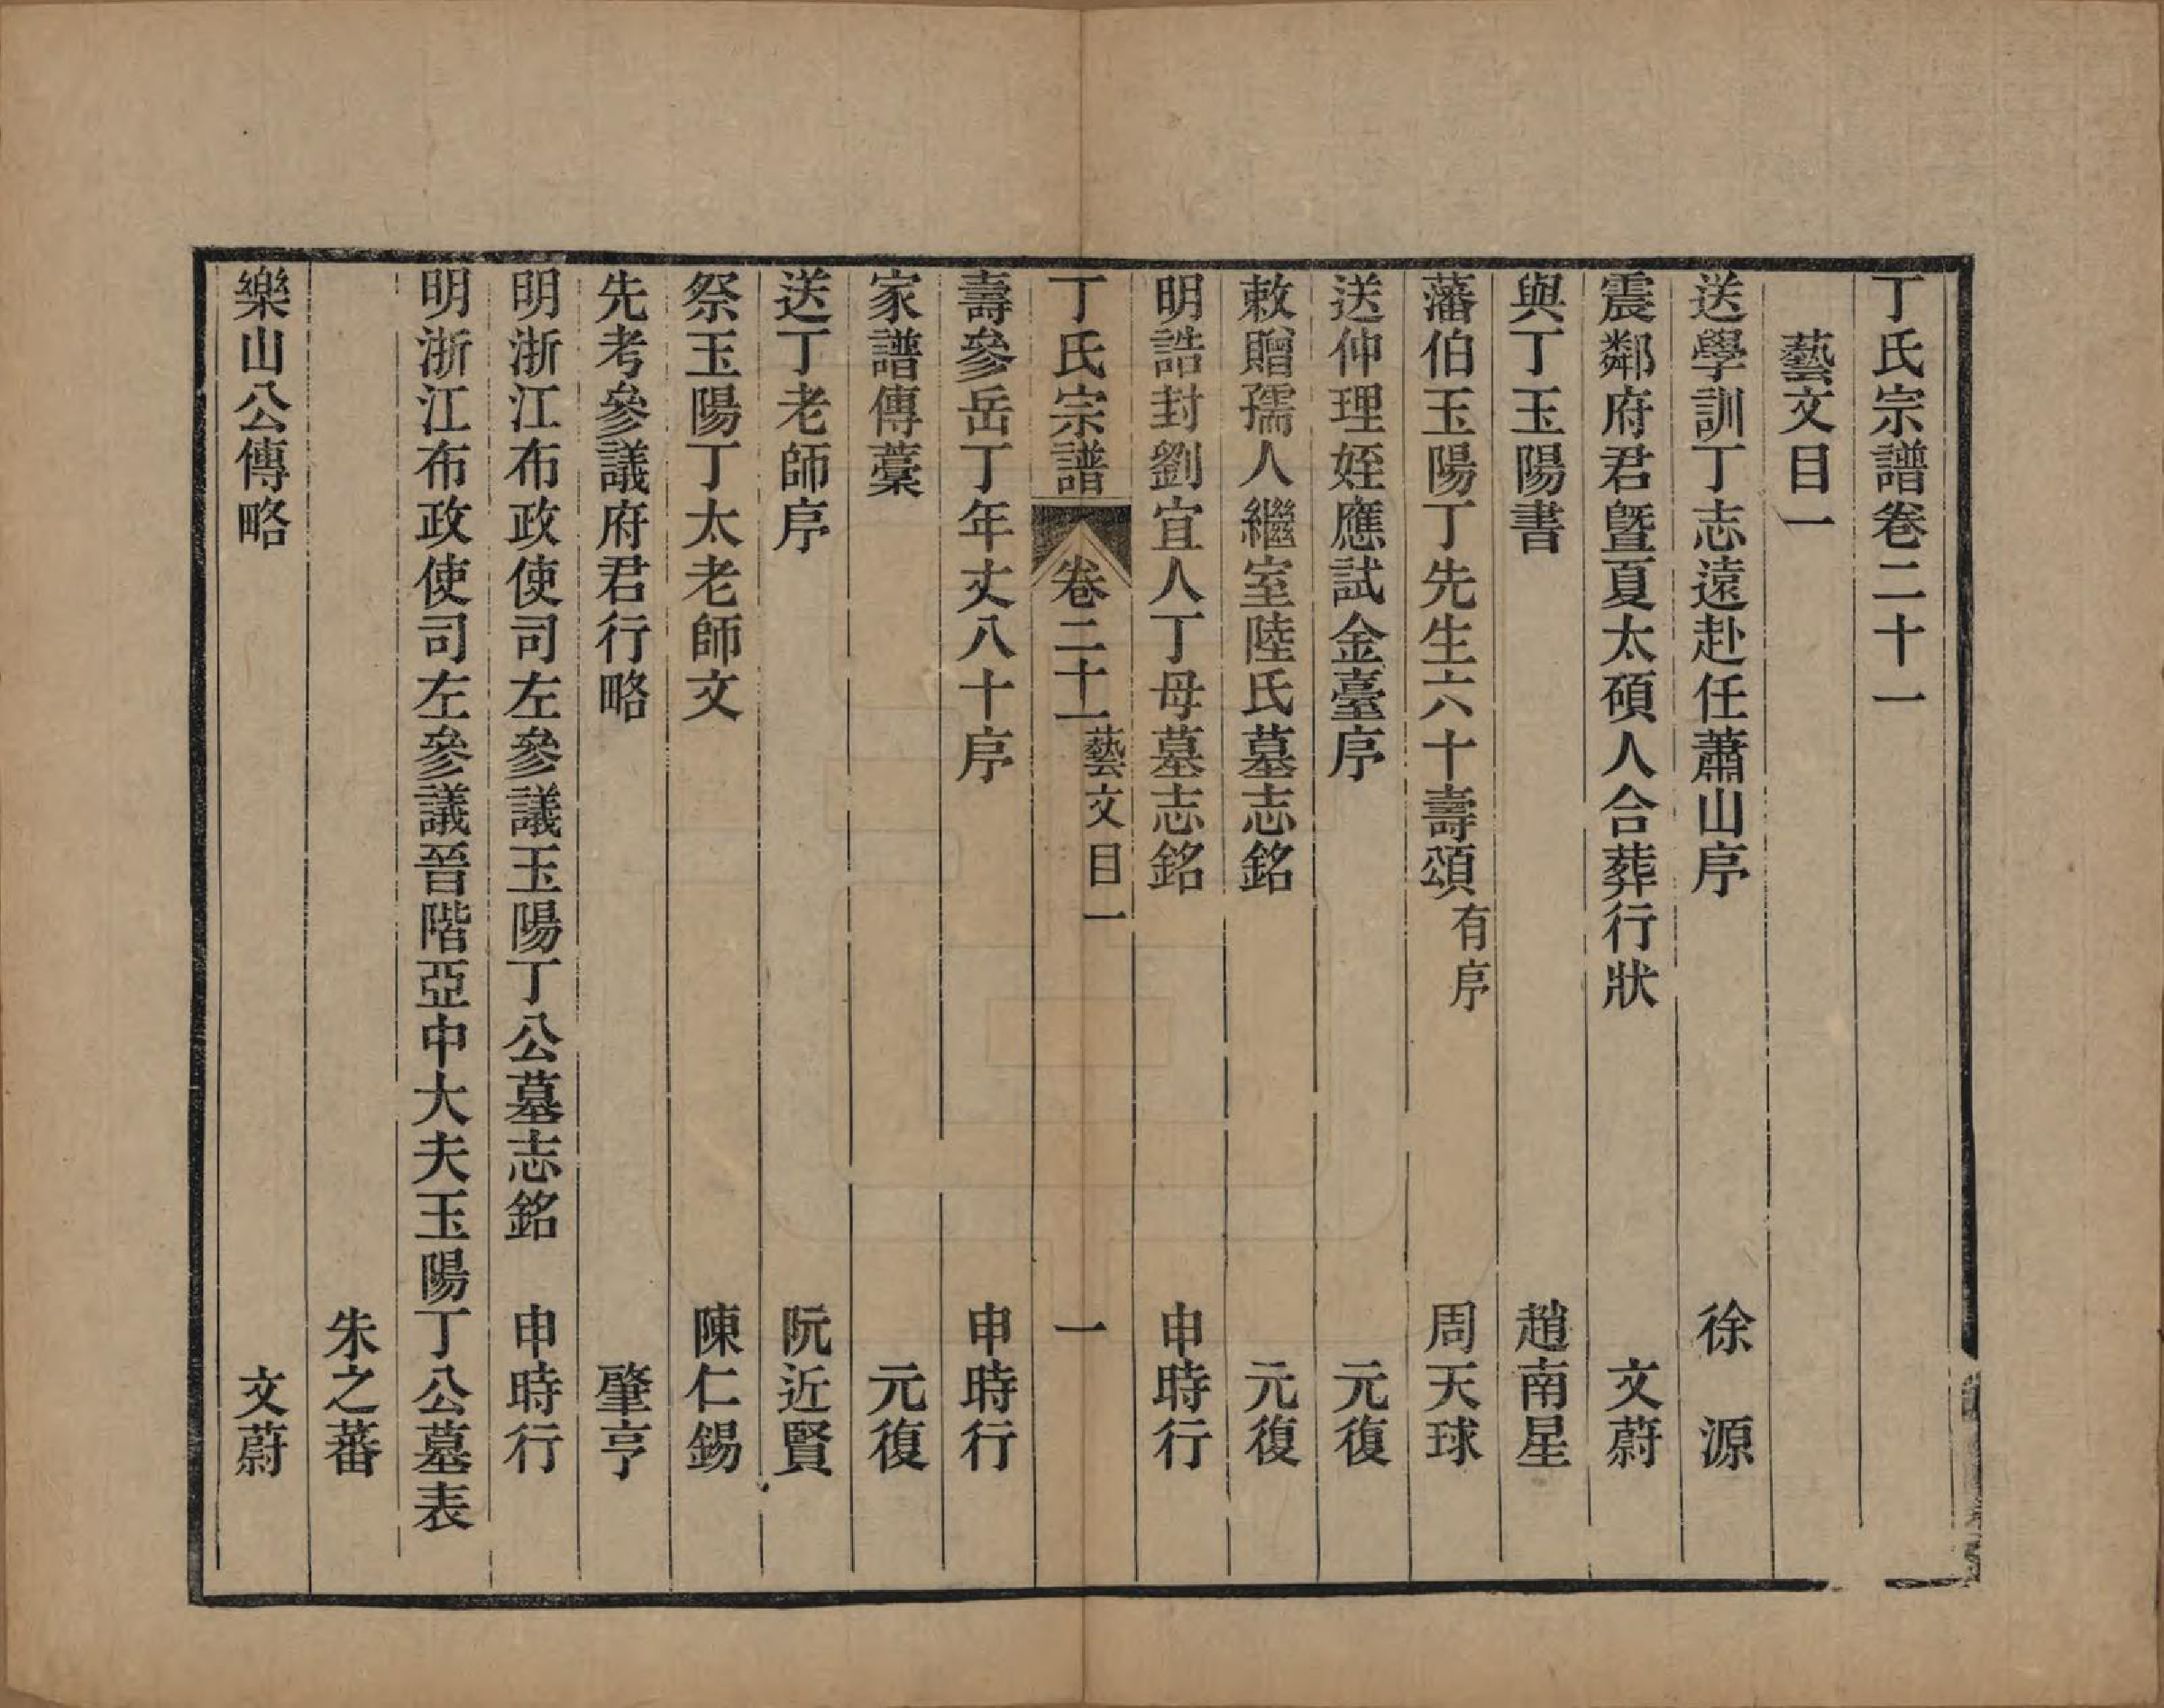 丁氏宗譜卷二十一
藝文目一
送學訓丁志遠赴任蕭山序 徐 源
震鄰府君曁夏太碩人合葬行狀 文蔚
與丁玉陽書 趙南星
藩伯玉陽丁先生六十壽頌有序 周天球
送仲理姪應試金臺序 元復
敕贈孺人繼室陸氏墓志銘 元復
明誥封劉宜人丁母墓志銘 申時行
丁氏宗譜 卷二十一 藝文目一 一
壽參岳丁年丈八十序 申時行
家譜傳藁 元復
送丁老師序 阮近賢
祭玉陽丁太老師文 陳仁錫
先考參議府君行略 肇亨
明浙江布政使司左參議玉陽丁公墓志銘 申時行
明浙江布政使司左參議晉階亞中大夫玉陽丁公墓表
朱之蕃
樂山公傳略 文蔚